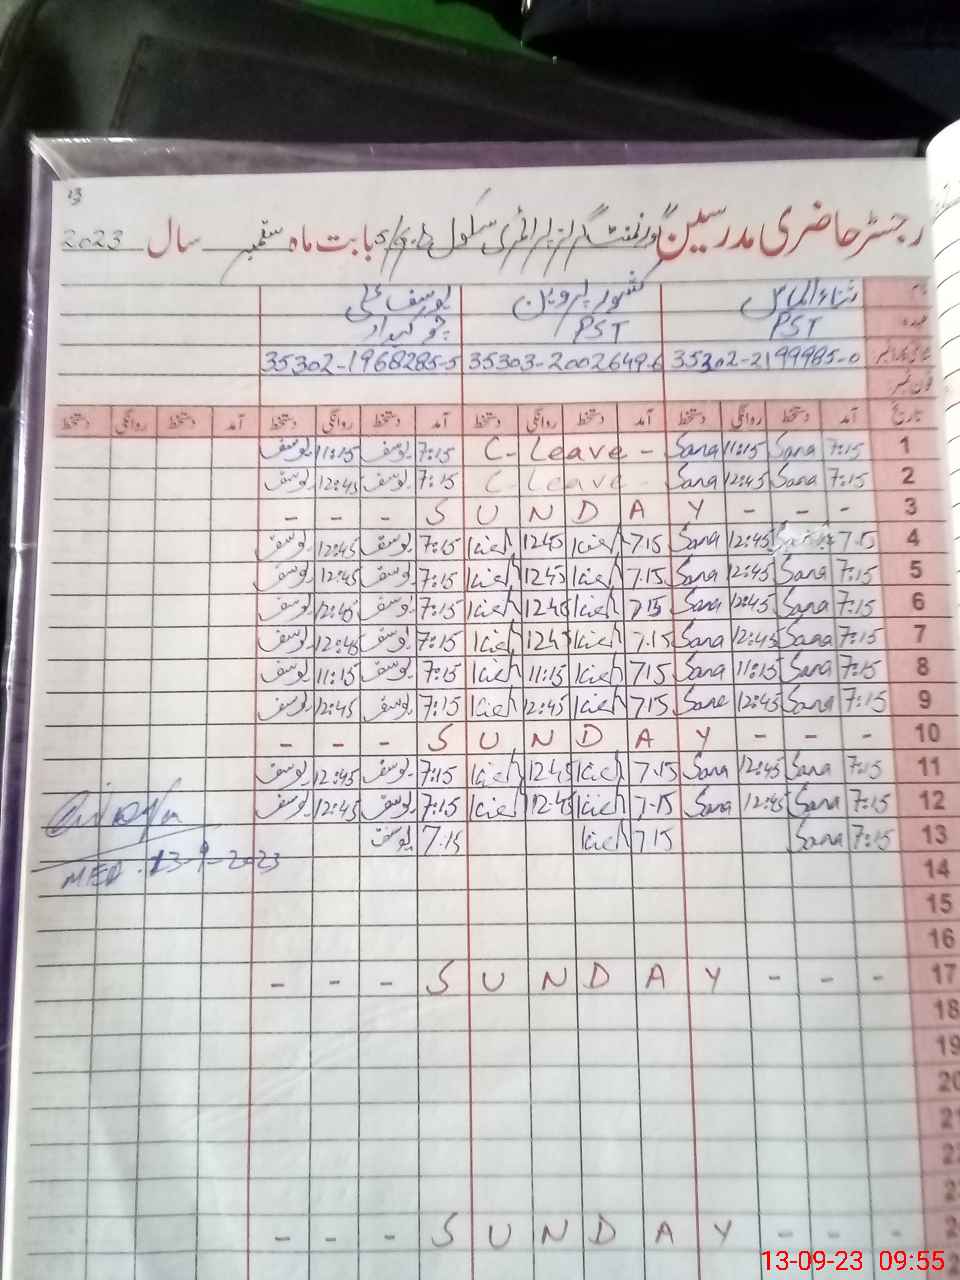 13
رجسٹر حاضری مدرسین گورنمنٹ گرلز پرائمری سکول بابت ماہ ستمبر سال 2023
نام ثناء الماس کشور پروین یوسف علی
عہدہ PST PST چوکیدار
شناختی کارڈ نمبر 35302-2199985-0 35303-2002649-6 35302-1968285-5
فون نمبر:
تاریخ آمد دستخط روانگی دستخط آمد دستخط روانگی دستخط آمد دستخط روانگی دستخط آمد دستخط روانگی دستخط
1 7:15 Sana 11:15 Sana C-Leave - 7:15 یوسف 11:15 یوسف
2 7:15 Sana 12:45 Sana C-Leave - 7:15 یوسف 12:45 یوسف
3 - - - S U N D A Y - - -
4 7.15 12:45 Sana 7.15 1245 7:15 یوسف 12:45 یوسف
5 7:15 Sana 12:45 Sana 7.15 1245 7:15 یوسف 12:45 یوسف
6 7:15 Sana 12:45 Sana 7.15 1245 7:15 یوسف 12:45 یوسف
7 7:15 Sana 12:45 Sana 7.15 1245 7:15 یوسف 12:45 یوسف
8 7:15 Sana 11:15 Sana 7.15 11:15 7:15 یوسف 11:15 یوسف
9 7:15 Sana 12:45 Sana 7.15 12:45 7:15 یوسف 12:45 یوسف
10 - - - S U N D A Y - - -
11 7:15 Sana 12:45 Sana 7.15 1245 7:15 یوسف 12:45 یوسف
12 7:15 Sana 12:45 Sana 7.15 12-45 7:15 یوسف 12:45 یوسف
13 7:15 Sana 7.15 7.15 یوسف
13-9-2023
14
15
16
17 - - - S U N D A Y - - -
18
19
20
21
- - - S U N D A Y - - -
13-09-23 09:55